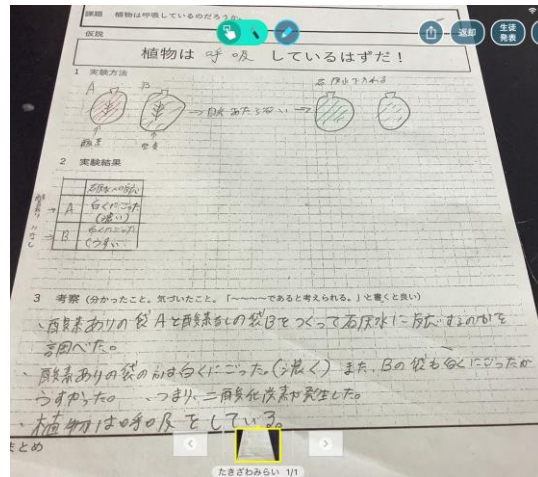 課題 植物は呼吸しているのだろうか。
返却
生徒
発表
仮説
植物は 呼吸 しているはずだ!
1 実験方法
A B
酸素
2 実験結果
A 白くにごった
(濃い)
B 白くにごった
(うすい
3 考察(分かったこと。気づいたこと。「~~~~であると考えられる。」と書くと良い)
・酸素ありの袋Aと酸素なしの袋Bをつくって石灰水に反応するのかを
調べた。
・酸素ありの袋の方は白くにごった。(濃く) また、Bの袋も白くにごったが
うすかった。 つまり、二酸化炭素が発生した。
・植物は呼吸をしている。
まとめ
たきざわみらい 1/1